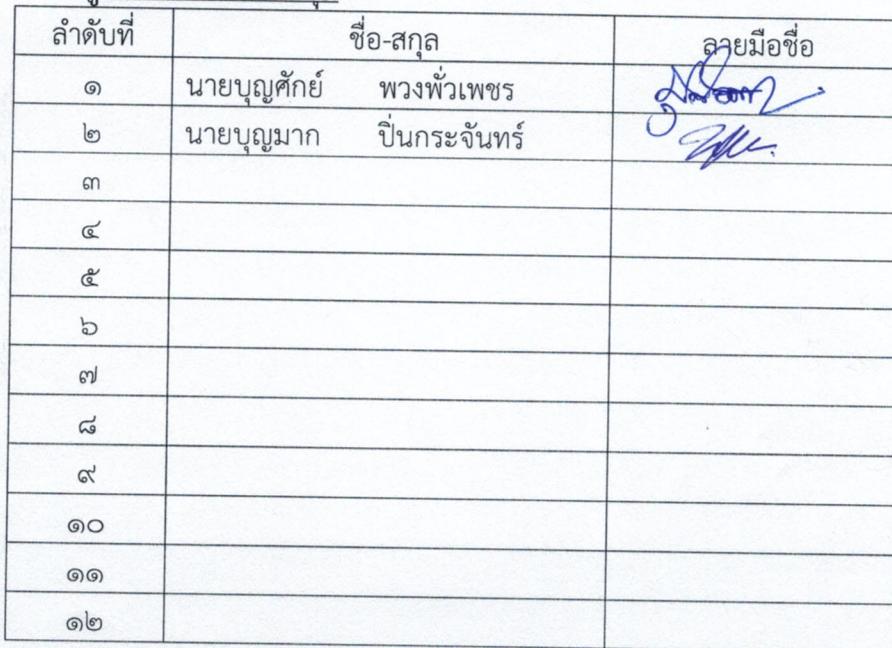 ลำดับที่ ชื่อ-สกุล ลายมือชื่อ
๑ นายบุญศักย์ พวงพั่วเพชร
๒ นายบุญมาก ปิ่นกระจันทร์
๓
๔
๕
๖
๗
๘
๙
๑๐
๑๑
๑๒